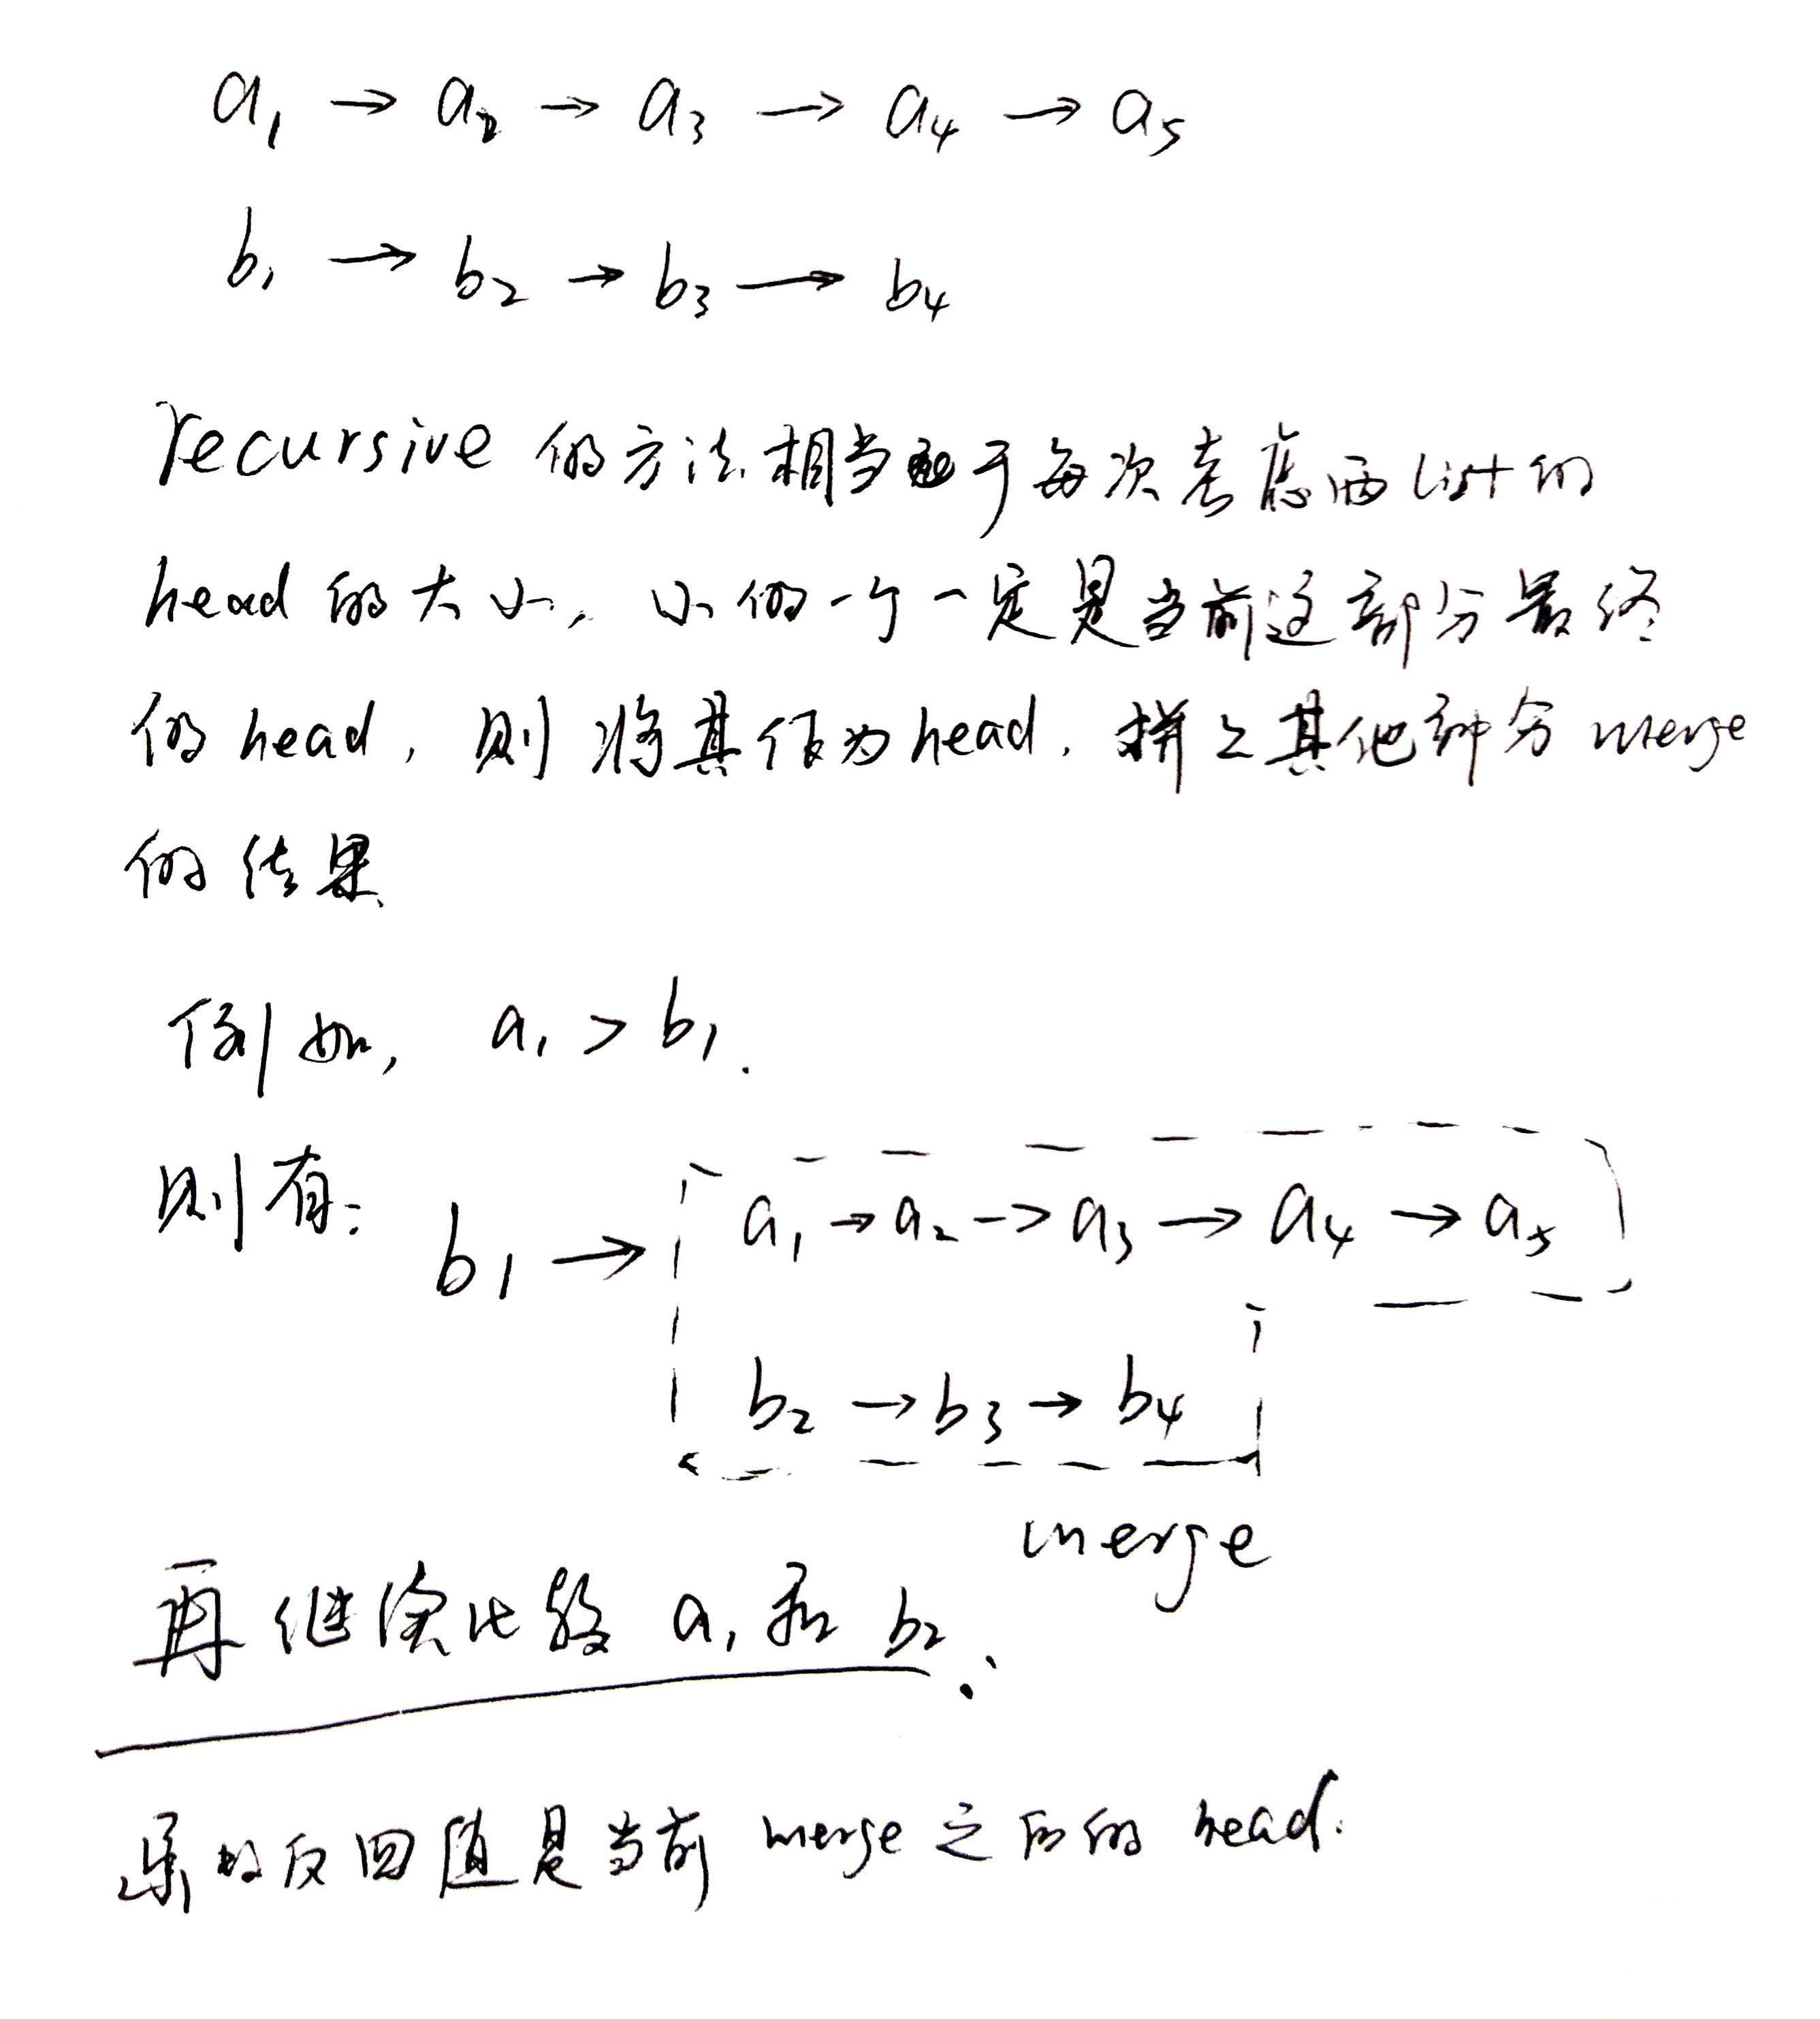 a₁ → a₂ → a₃ → a₄ → a₅
b₁ → b₂ → b₃ → b₄
recursive 的方法相当于每次考虑两 list 的
head 的大小，小的一个一定是当前这部分最终
的 head，则将其作为 head，拼上其他部分 merge
的结果
例如，a₁ > b₁.
则有：
a₁ → a₂ → a₃ → a₄ → a₅
b₁ →
b₂ → b₃ → b₄
merge
再继续比较 a₁ 和 b₂.
返回值是当前 merge 之后的 head.